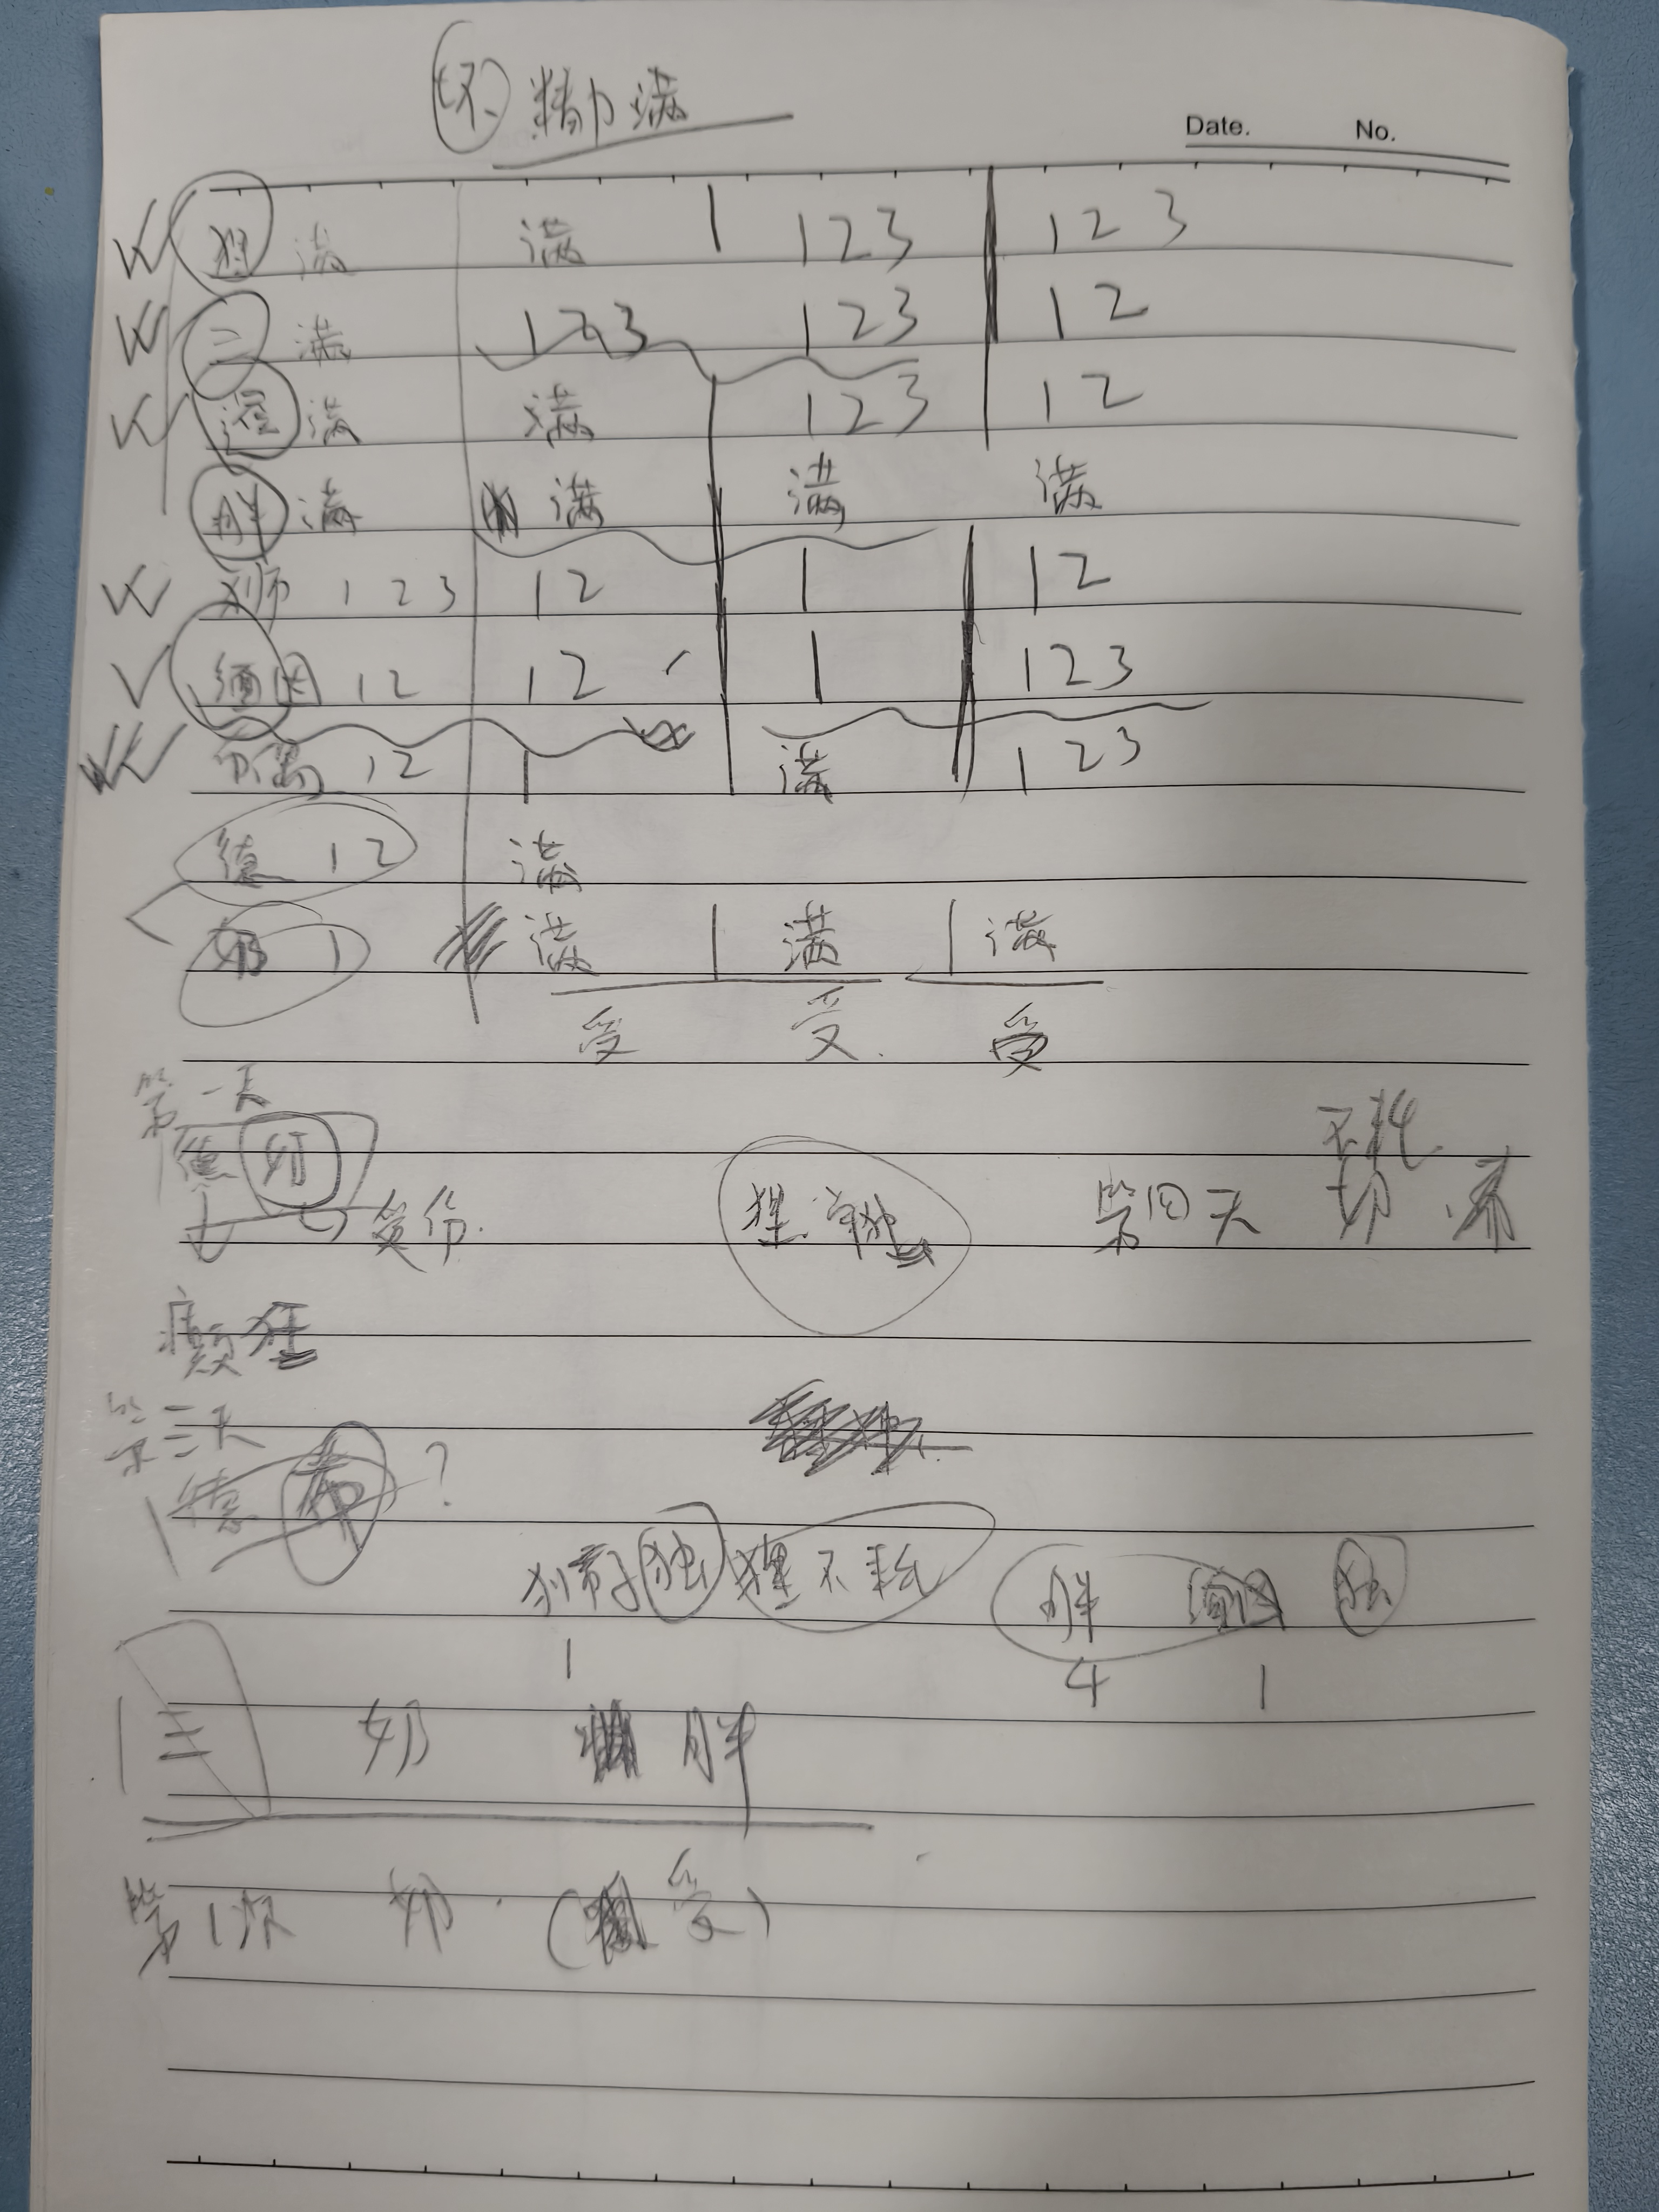 坏 精力满
Date. No.
猫 满 满 1 2 3 1 2 3
二 满 1 2 3 1 2 3 1 2
满 满 1 2 3 1 2
胖 满 满 满 满
狮 1 2 3 1 2 1 1 2
缅因 1 2 1 2 1 1 2 3
布偶 1 2 1 满 1 2 3
德 1 2 满
奶 1 满 满 满
受 受 受
第一天
德 奶 受伤 第四天 奶 布
不耗
癫狂
第三天
德 布 ?
狮子 独 狸 不耗 胖 独
1 4 1
三 奶 胖
第1次 奶 ( 受 )